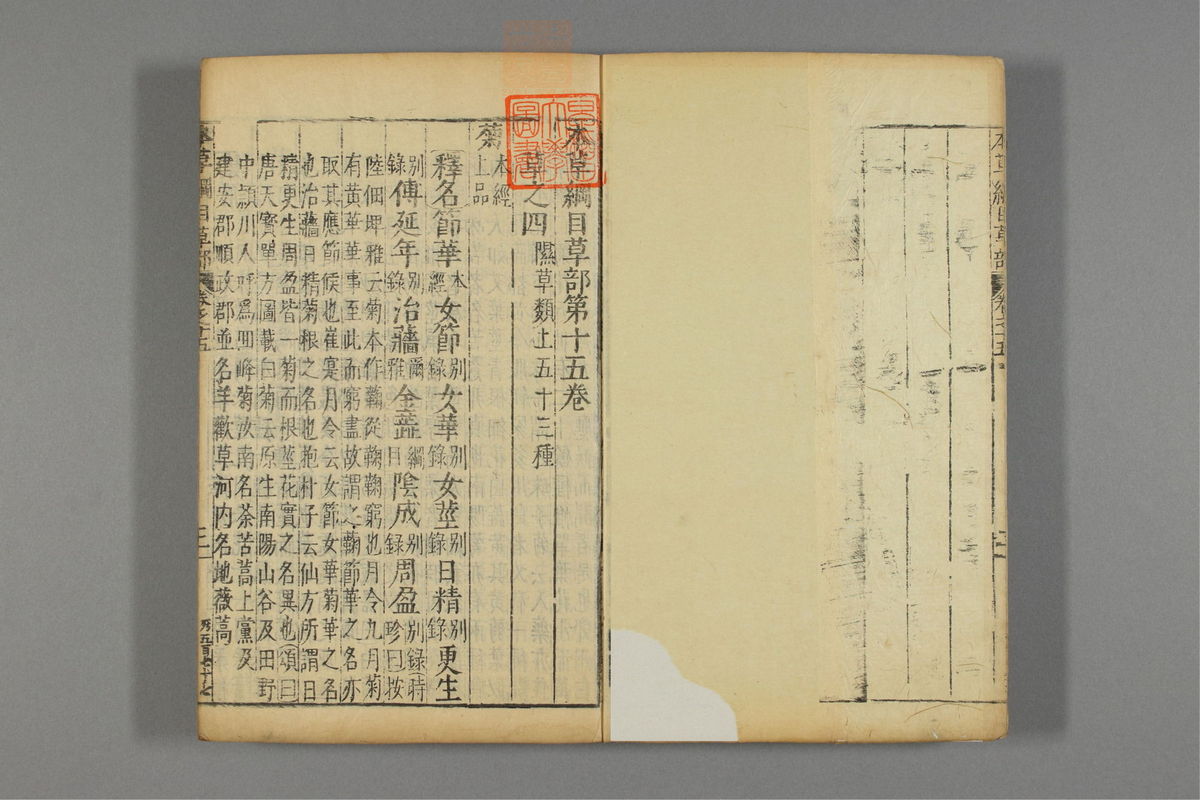 本草綱目草部第十五卷
草之四 隰草類上五十三種
菊 本經上品
釋名節華本經女節別錄女華別錄女莖別錄日精別錄更生
別錄傅延年別錄治蘠爾雅金蕋綱目陰成別錄周盈別錄時珍曰按
陸佃埤雅云菊本作蘜從鞠鞠窮也月令九月菊
有黃華華事至此而窮盡故謂之蘜節華之名亦
取其應節候也崔寔月令云女節女華菊華之名
也治蘠日精菊根之名也抱朴子云仙方所謂日
精更生周盈皆一菊而根莖花實之名異也頌曰
唐天寶單方圖載白菊云原生南陽山谷及田野
中潁川人呼爲回峰菊汝南名茶苦蒿上黨及
建安郡順政郡並名羊歡草河內名地薇蒿
本草綱目草部 卷之十五
本草綱目草部 卷之十五